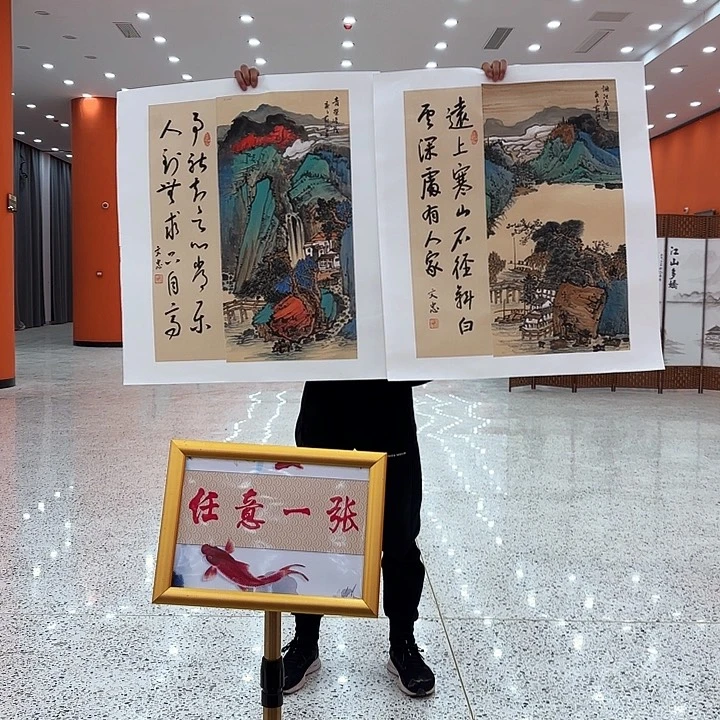 事能知足心常乐
人到無求品自高
文忠
遠上寒山石徑斜白
雲深處有人家
文忠
江山多娇
任意一张